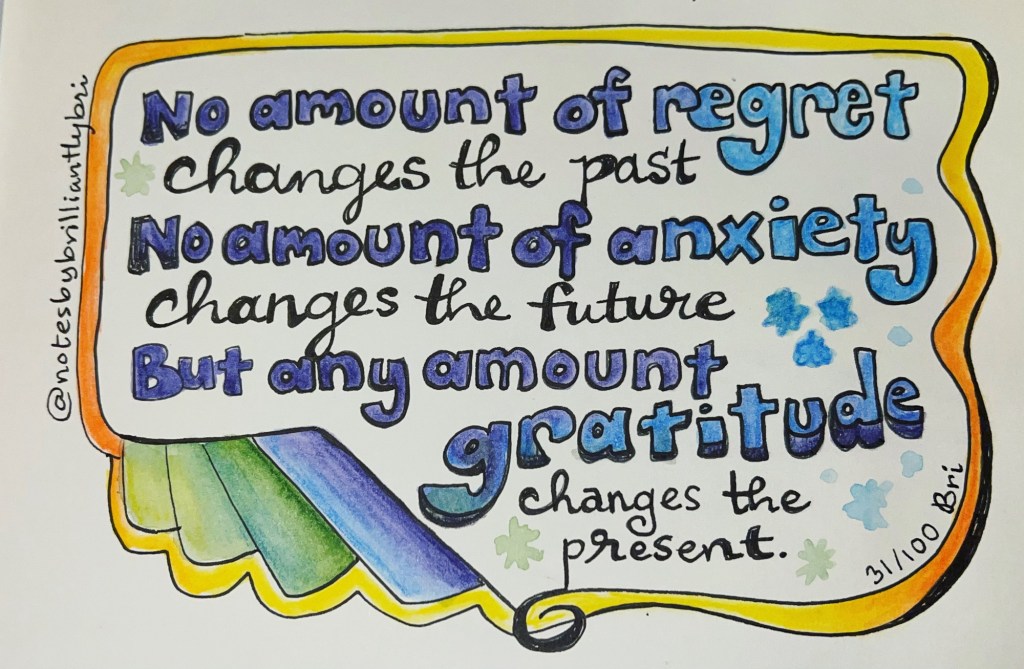 @notesbybrilliantlybri
No amount of regret
changes the past
No amount of anxiety
changes the future
But any amount
gratitude
changes the
present.
31/100 Bri